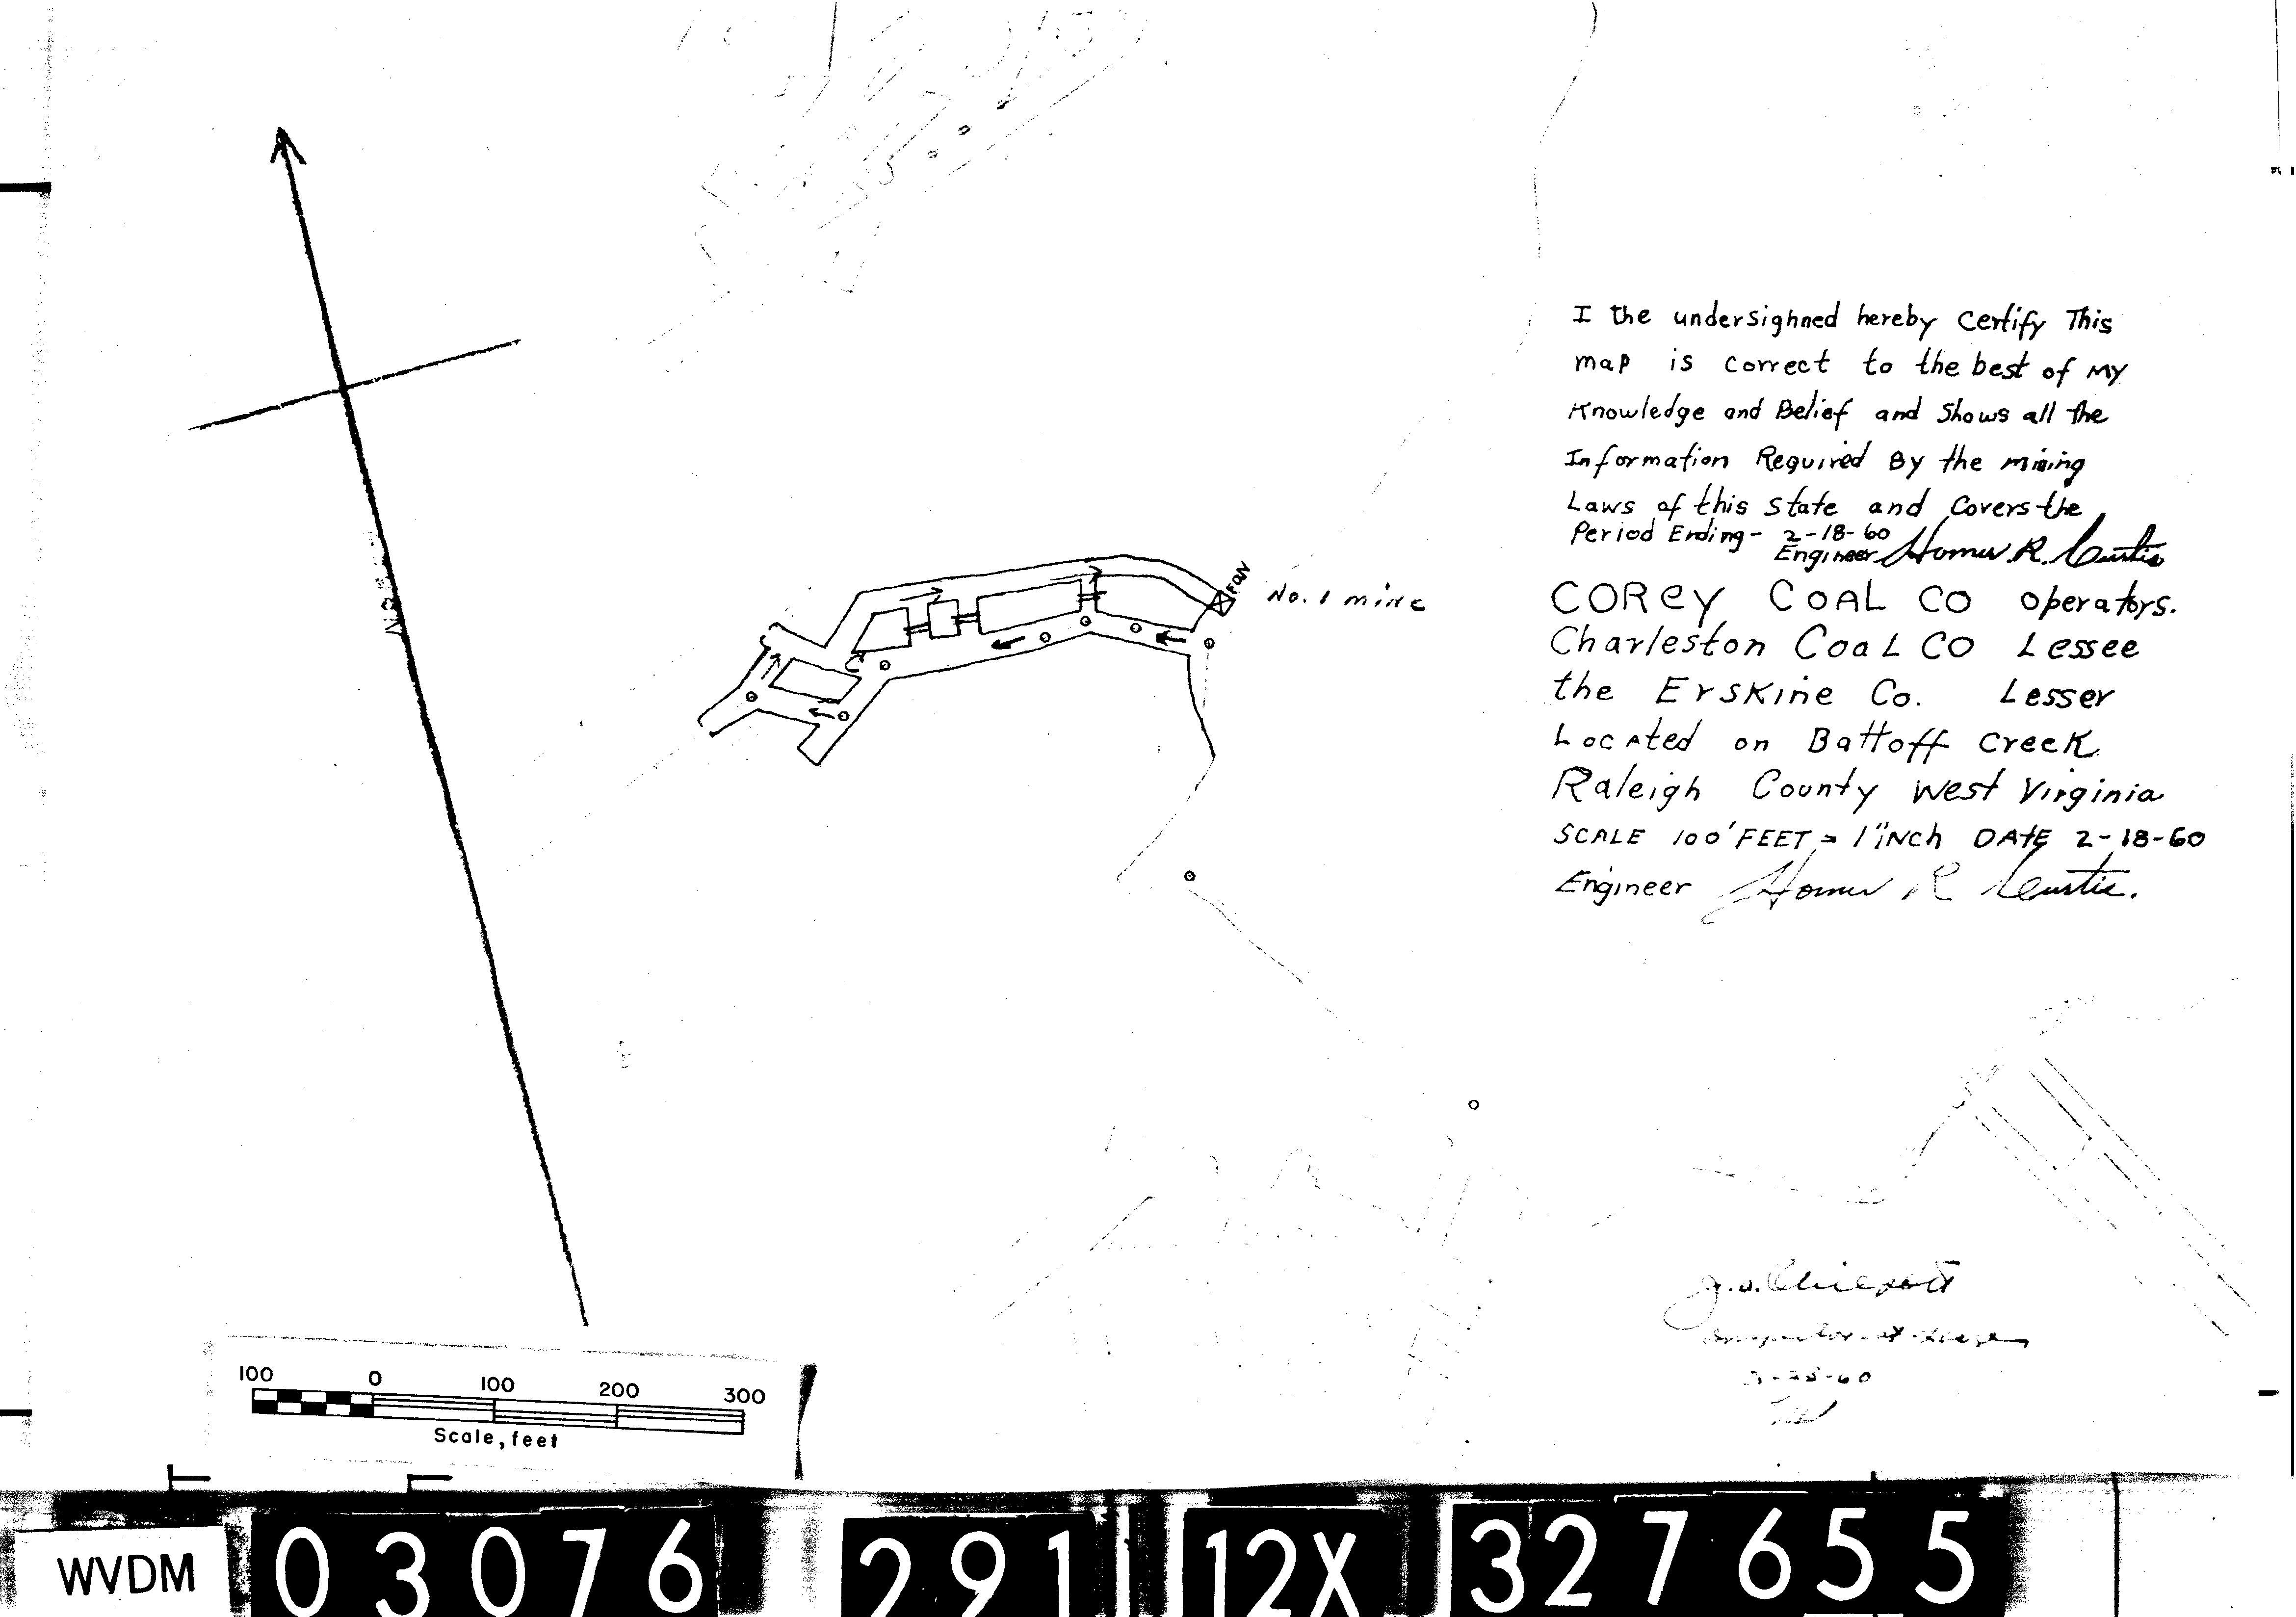 I the undersighned hereby Certify This
map is correct to the best of My
Knowledge and Belief and Shows all the
Information Required By the mining
Laws of this State and Covers the
Period Ending - 2-18-60
Engineer Homer R. Curtis
FAN
No. 1 mine
COREY COAL CO operators.
Charleston Coal CO Lessee
the Erskine Co. Lesser
Located on Battoff Creek
Raleigh County West Virginia
SCALE 100' FEET = 1" INCH DATE 2-18-60
Engineer Homer R Curtis.
100 0 100 200 300
Scale, feet
WVDM 03076 291 12X 327655